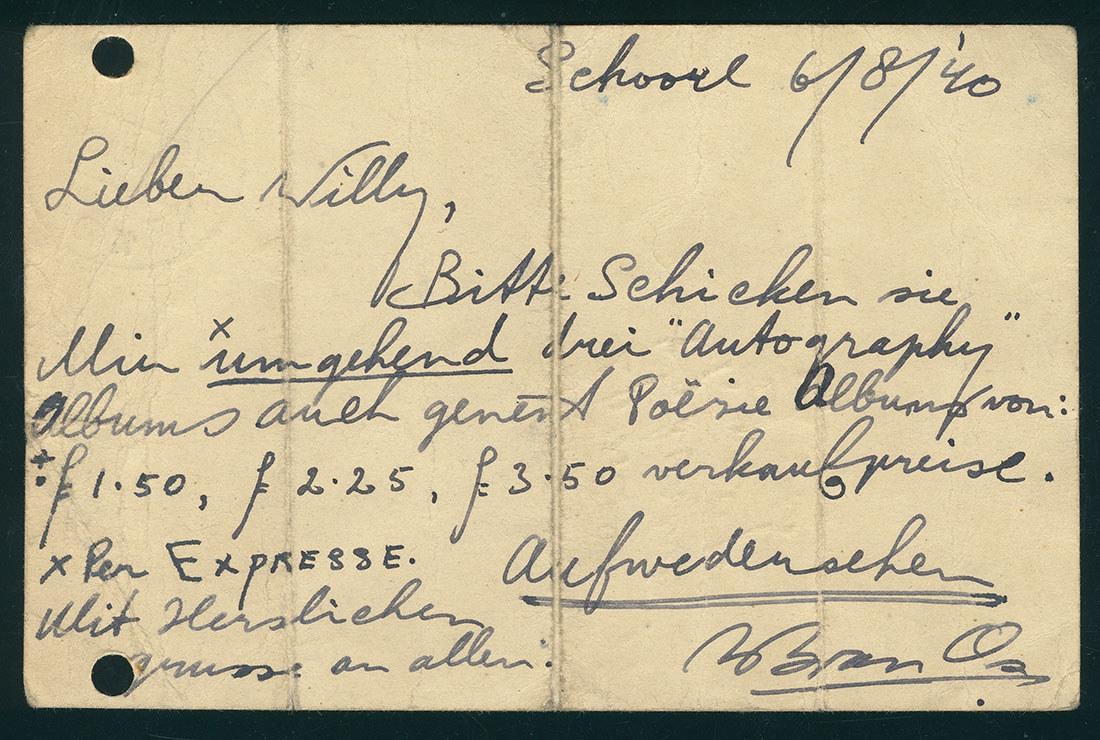 Schoorl 6/8/'40
Lieber Willy,
Bitte Schicken sie
Mir x umgehend drei "Autography"
albums auch genent Poësie Albums von:
± f 1.50, f 2.25, f 3.50 verkaufpreise.
x Per EXPRESSE.
Aufwedersehen
Mit Herslichen
grusse an allen: